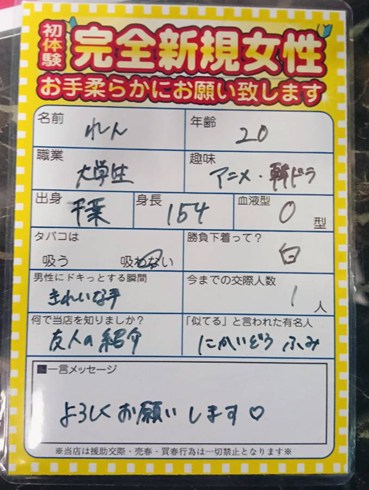 初体験 完全新規女性
お手柔らかにお願い致します
名前 れん 年齢 20
職業 大学生 趣味 アニメ・韓ドラ
出身 千葉 身長 154 血液型 O 型
タバコは 吸う 吸わない 勝負下着って? 白
男性にドキっとする瞬間 きれいな手 今までの交際人数 1 人
何で当店を知りましたか? 友人の紹介 「似てる」と言われた有名人 にかいどう ふみ
■一言メッセージ
よろしくお願いします♡
※当店は援助交際・売春・買春行為は一切禁止となります※